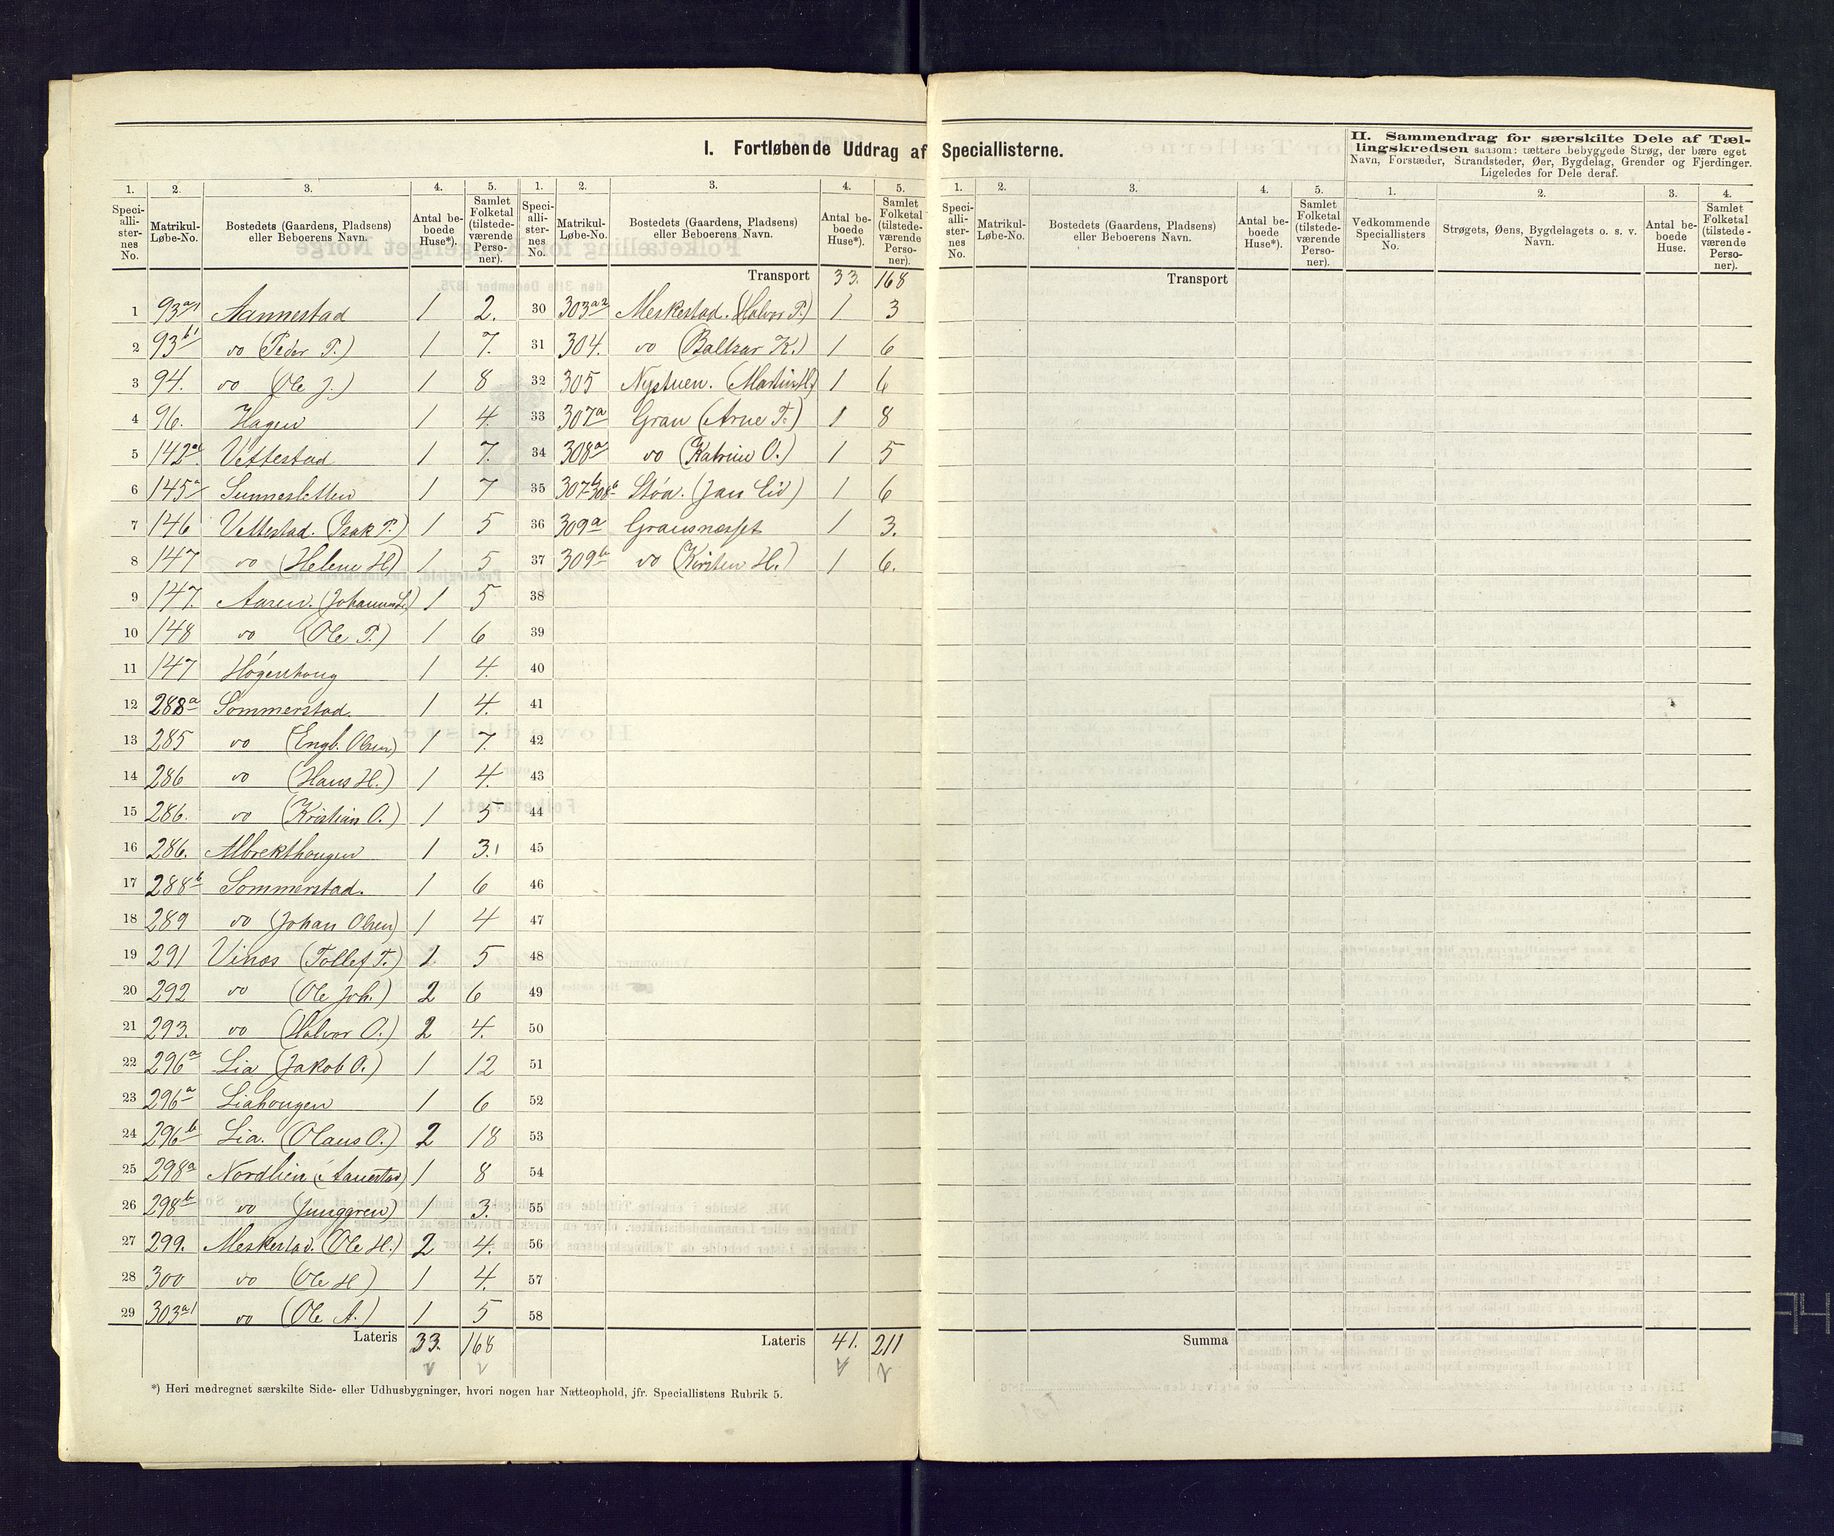 I. Fortløbende Uddrag af Speciallisterne.
II. Sammendrag for særskilte Dele af Tæl-
lingskredsen saasom: tættere bebyggede Strøg, der bære eget
Navn, Forstæder, Strandsteder, Øer, Bygdelag, Grender og Fjerdinger.
Ligeledes for Dele deraf.
1. 2. 3. 4. 5. 1. 2. 3. 4. 5. 1. 2. 3. 4. 5. 1. 2. 3. 4.
Speciallisternes No. Matrikul-Løbe-No. Bostedets (Gaardens, Pladsens) eller Beboerens Navn. Antal beboede Huse*). Samlet Folketal (tilstedeværende Personer).
Speciallisternes No. Matrikul-Løbe-No. Bostedets (Gaardens, Pladsens) eller Beboerens Navn. Antal beboede Huse*). Samlet Folketal (tilstedeværende Personer).
Speciallisternes No. Matrikul-Løbe-No. Bostedets (Gaardens, Pladsens) eller Beboerens Navn. Antal beboede Huse*). Samlet Folketal (tilstedeværende Personer).
Vedkommende Speciallisters No. Strøgets, Øens, Bygdelagets o. s. v. Navn. Antal beboede Huse. Samlet Folketal (tilstedeværende Personer).
1 93a1 Aannestad 1 2.
2 93b1 do (Peder P.) 1 7.
3 94. do (Ole J.) 1 8
4 96. Hagen 1 4.
5 142a Vettestad 1 7.
6 145a Sunnesletten 1 7
7 146 Vettestad. (Isak P.) 1 5
8 147 do (Helene H) 1 5
9 147. Aasen. 1 5
10 148 do (Ole P.) 1 6
11 147 Høgenhoug 1 4.
12 288a Sommerstad. 1 4.
13 285 do (Engb. Olsen) 1 7.
14 286 do (Hans H.) 1 4.
15 286. do (Kristian O.) 1 5
16 286. Albrekthougen 1 3.
17 288b Sommerstad. 1 6
18 289 do (Johan Olsen) 1 4
19 291 Vinæs (Tollef T.) 1. 5
20 292 do (Ole Joh.) 2 6
21 293. do (Halvor O.) 2 4.
22 296a Lia (Jakob O.) 1 12
23 296a Liahougen 1 6
24 296b Lia. (Olaus O.) 2 18
25 298a Nordlien (Aanestad) 1 8
26 298b do (Junggren) 1 3.
27 299. Meskestad. (Ole H.) 2 4.
28 300 do (Ole H) 1 4.
29 303a1 do (Ole A.) 1 5
Lateris 33. 168
Transport 33. 168
30 303a2 Meskestad. (Halvor P.) 1 3
31 304. do (Baltsar K.) 1 6
32 305 Nystuen. (Martin H) 1 6
33 307a Gran (Arne T.) 1 8
34 308a do (Katrine O.) 1 5
35 307b 308b Støa. 1 6
36 309a Gransnæsset 1 3.
37 309b do (Kirsten H.) 1 6.
38
39
40
41
42
43
44
45
46
47
48
49
50
51
52
53
54
55
56
57
58
Lateris 41. 211
Transport
Summa
*) Heri medregnet særskilte Side- eller Udhusbygninger, hvori nogen har Natteophold, jfr. Speciallistens Rubrik 5.